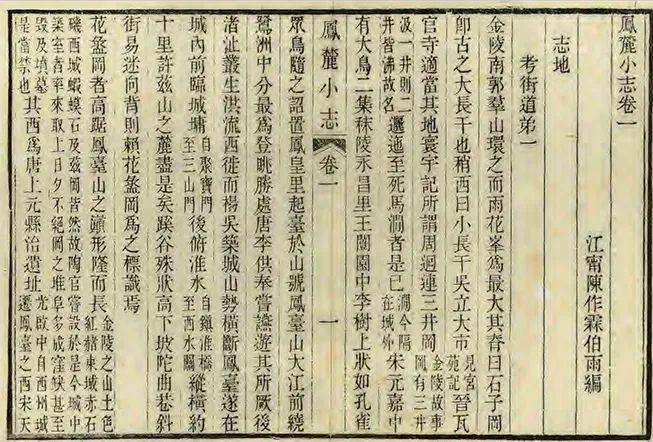 鳳麓小志卷一
江甯陳作霖伯雨編
志地
考街道弟一
金陵南郭羣山環之而雨花峯爲最大其脊曰石子岡
卽古之大長干也稍西曰小長干吳立大市見宮苑記晉瓦
官寺適當其地寰宇記所謂周迴連三井岡金陵故事岡有三井
汲一井則二井皆沸故名邐迤至死馬澗者是已澗今隔在城外宋元嘉中
有大鳥二集秣陵永昌里王闓園中李樹上狀如孔雀
鳳麓小志 卷一 一
眾鳥隨之詔置鳳皇里起臺於山號鳳臺山大江前繞
鷺洲中分最爲登眺勝處唐李供奉嘗讌遊其所厥後
渚沚叢生淇流西徙而楊吳築城山勢橫斷鳳臺遂在
城內前臨城墉自聚寶門至三山門後俯淮水自鎮淮橋至西水關縱橫約
十里許茲山之麓盡是矣蹊谷殊狀高下坡陀曲巷斜
街易迷向背則賴花盝岡爲之標識焉
花盝岡者高踞鳳臺山之巔形隆而長金陵之山土色紅赭東城赤石
磯西城蝦蟆石及茲岡皆然故陶官嘗設於是今城中
築室者率來取土日夕不絕岡之堆阜多成窪缺甚至
毀及墳墓是當禁也其西爲唐上元縣治遺址光啟中自西州城遷鳳臺之西宋天